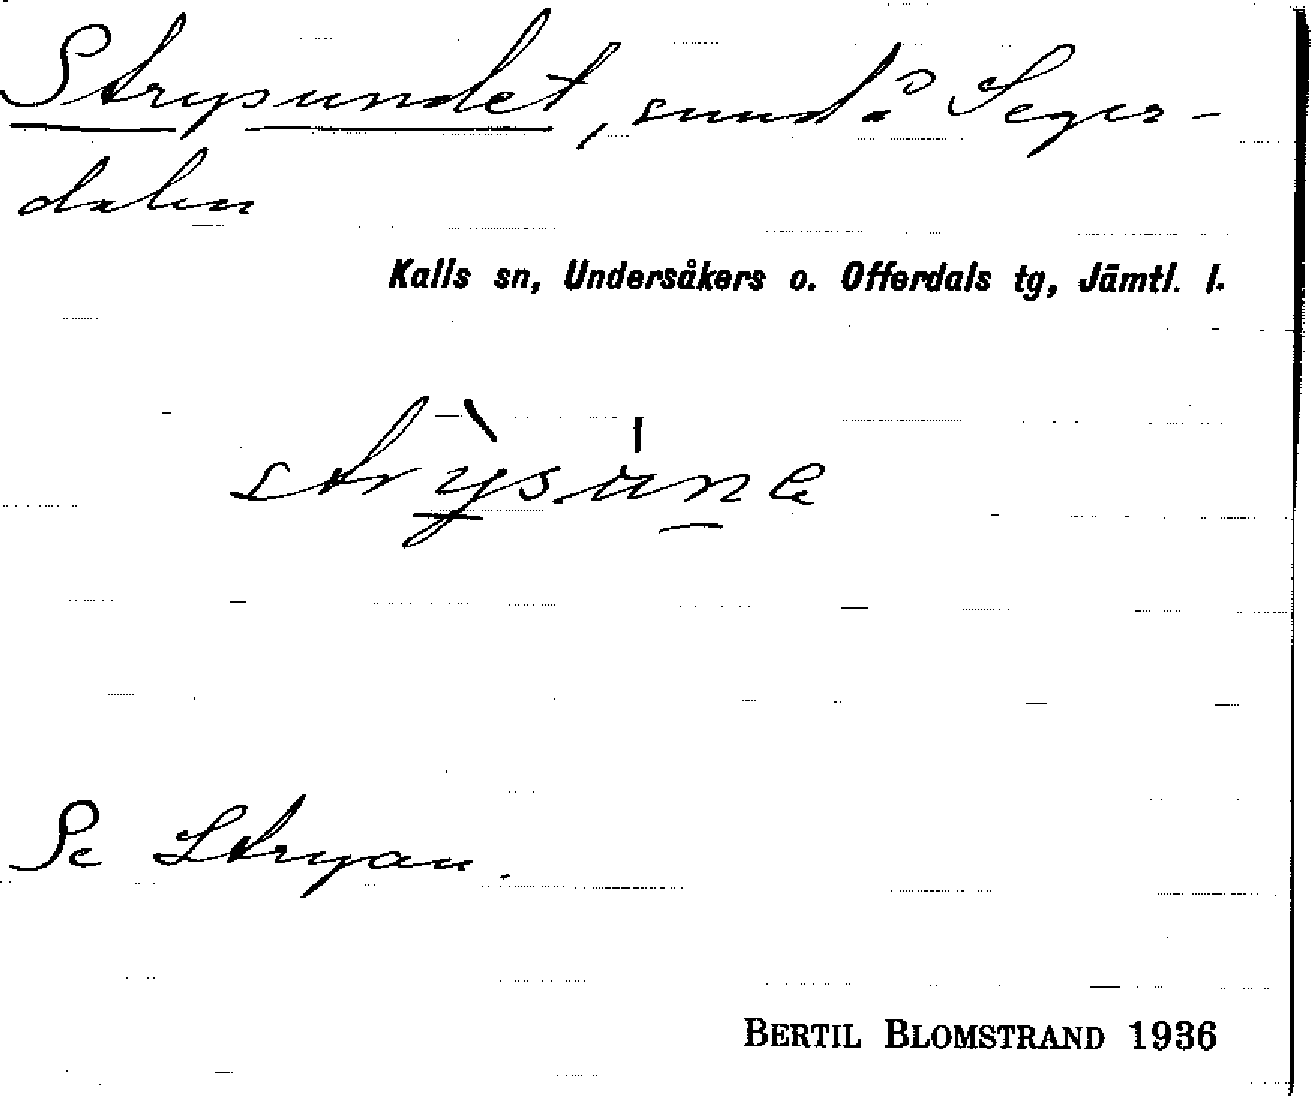 Strysundet, sund i Seger-
dalen
Kalls sn, Undersåkers o. Offerdals tg, Jämtl. l.
strỳsúne
Se Stryan.
BERTIL BLOMSTRAND 1936